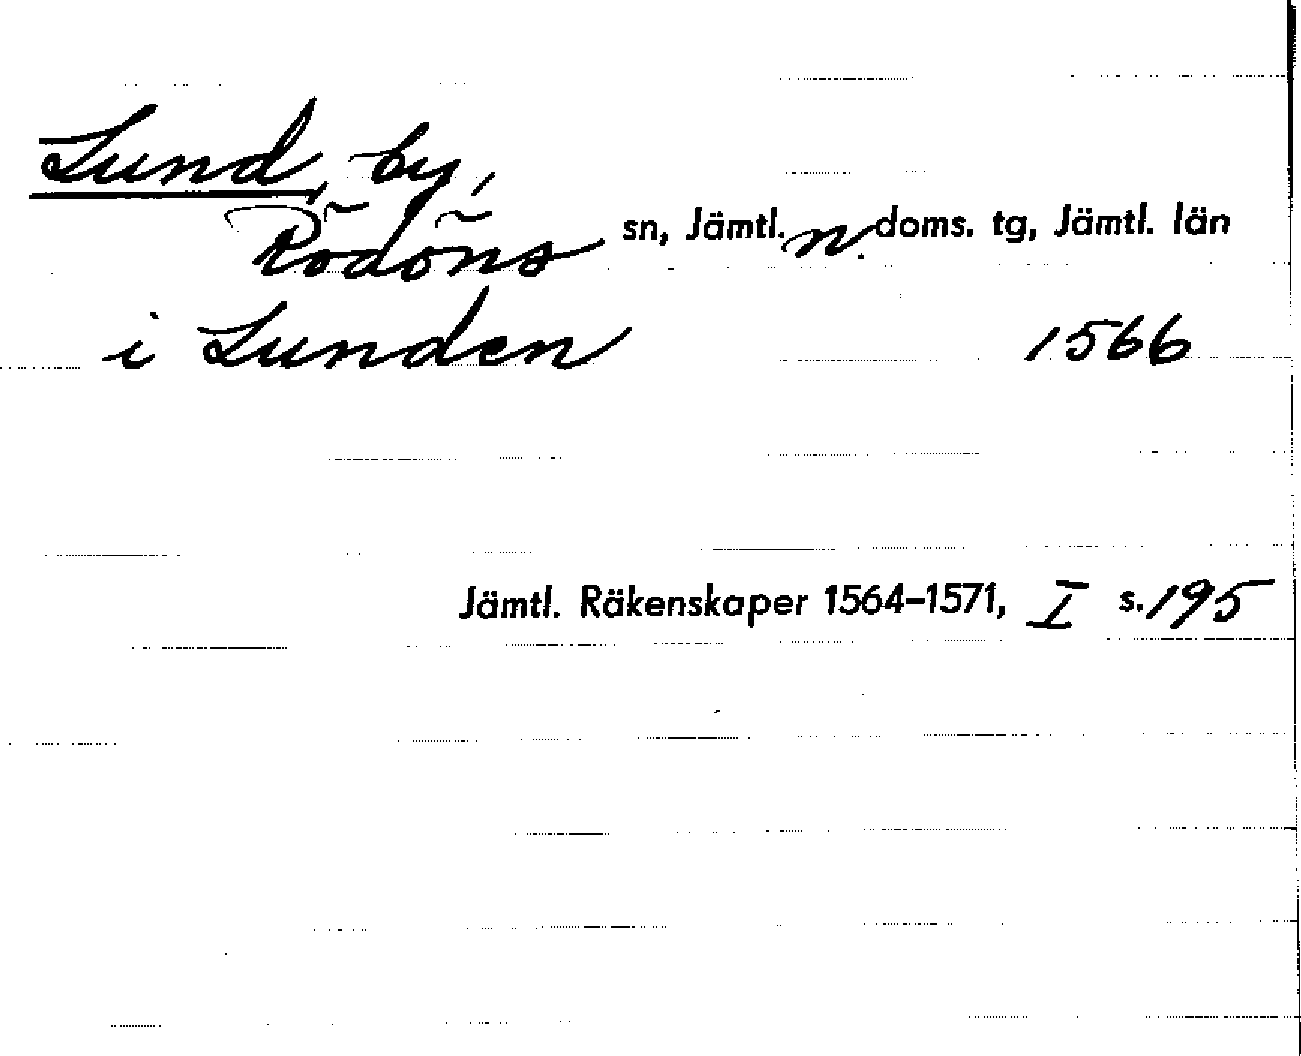 Lund, by,
Rödöns sn, Jämtl. n. doms. tg, Jämtl. län
i Lunden 1566
Jämtl. Räkenskaper 1564-1571, I s. 195